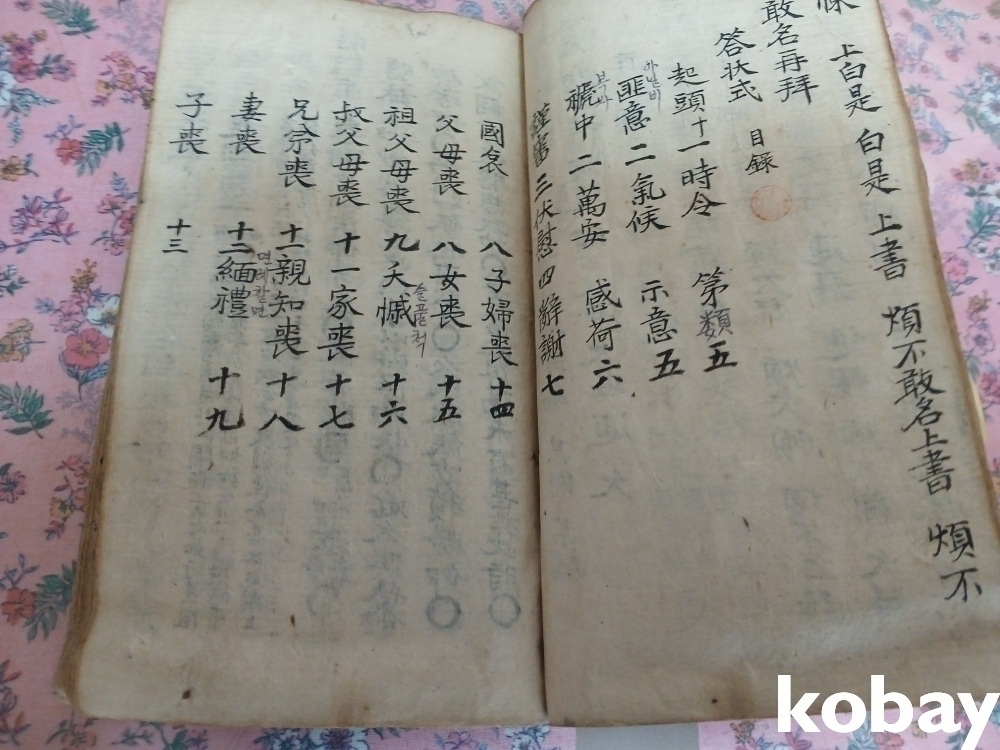 上白是 白是 上書 煩不敢名上書 煩不
敢名再拜
答狀式 目錄
起頭 十一時令 第類五
匪意 二氣候 示意 五
아닐비
中 二萬安 感荷 六
三伏慰 四辭謝 七
國哀 八子婦喪 十四
父母喪 八女喪 十五
祖父母喪 九夭慽 十六
슬플척
叔父母喪 十一家喪 十七
兄弟喪 十一親知喪 十八
妻喪 十二緬禮 十九
면례할면
子喪 十三
kobay